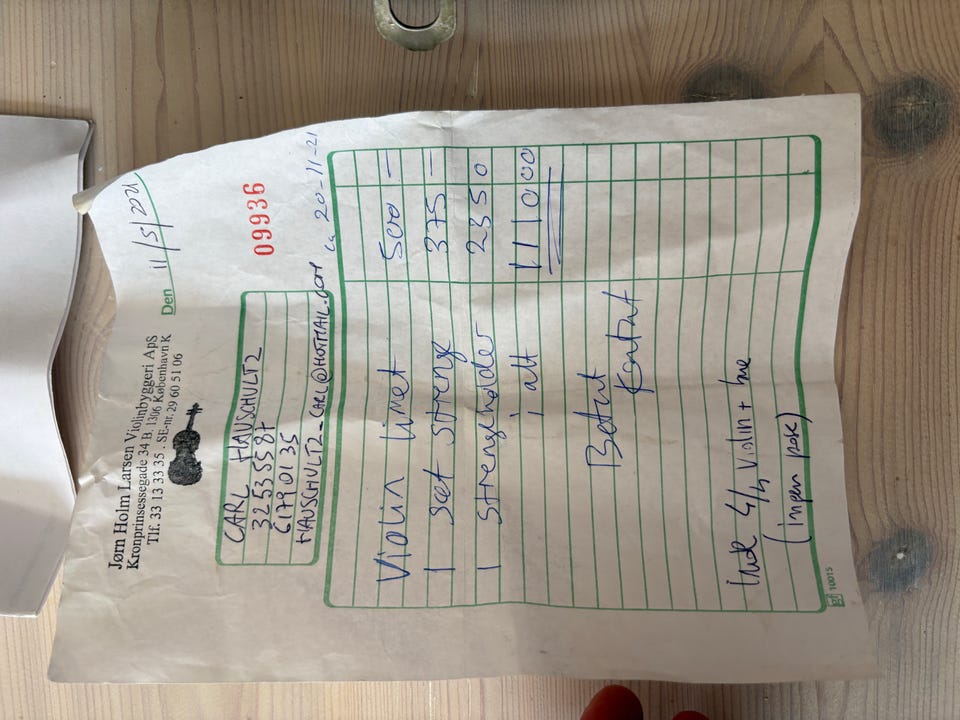 Jørn Holm Larsen Violinbyggeri ApS
Kronprinsessegade 34 B, 1306 København K
Tlf. 33 13 33 35 . SE-nr. 29 60 51 06
Den 11/5/2021
09936
CARL HAUSCHULTZ
32535587
61790135
HAUSCHULTZ_CARL@HOTMAIL.COM
ca 20-11-21
Violin limet 5000 —
1 sæt strenge 375 —
1 strengeholder 2350
i alt 11000
Betalt
Kontant
4/4 violin + bue
(ingen
gf 10015